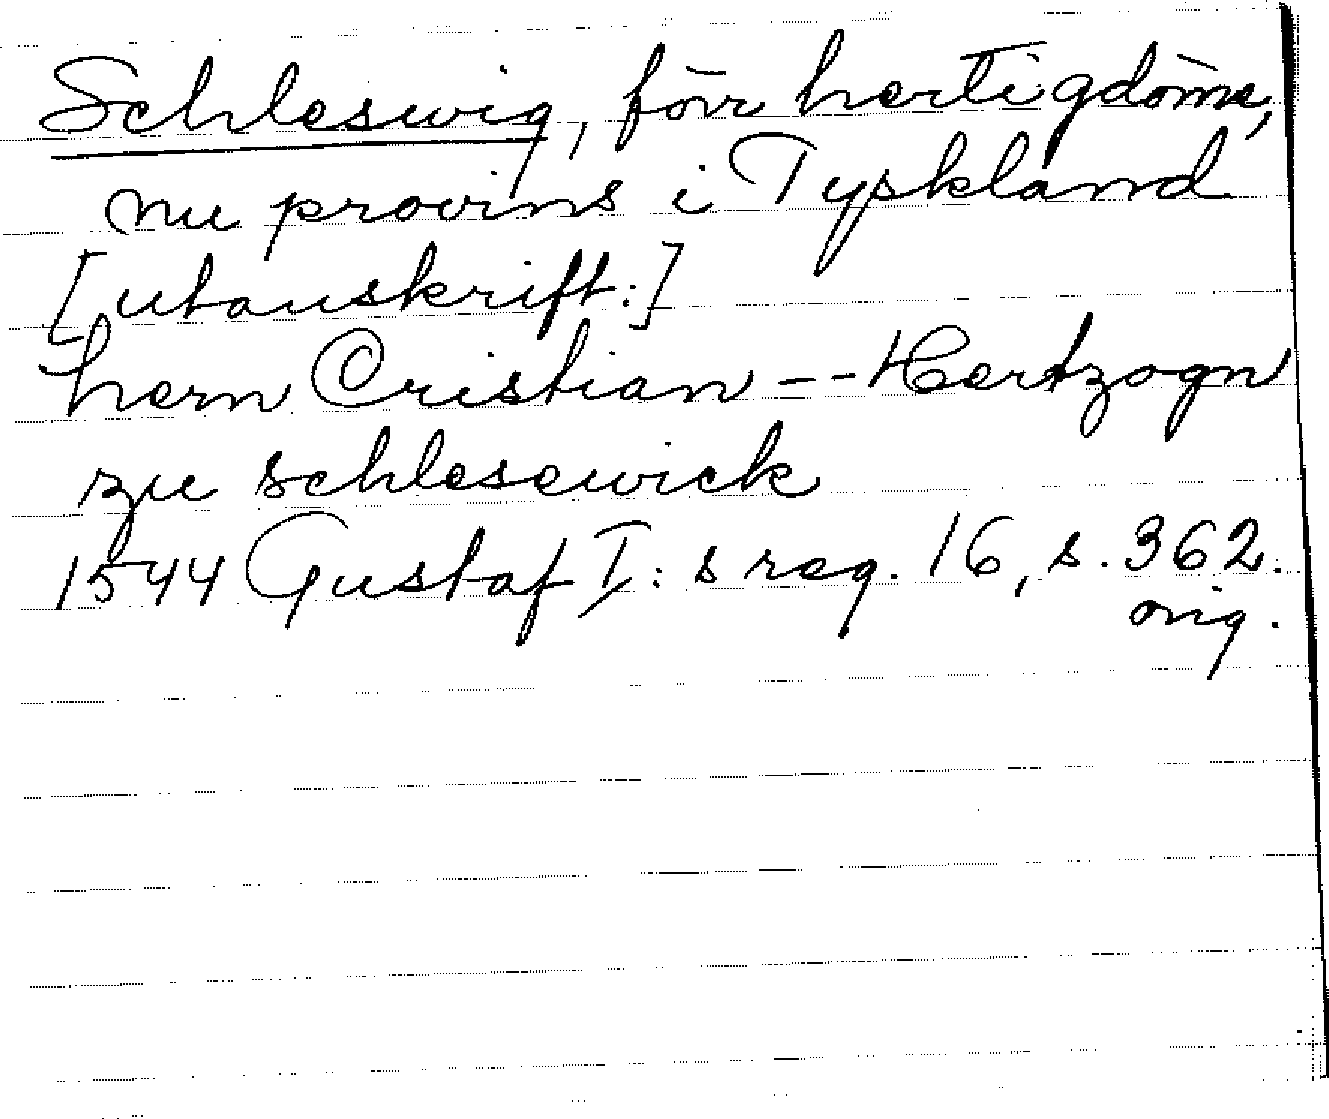 Schleswig, förr hertigdöme,
nu provins i Tyskland
[utanskrift:]
hern Cristian -- Hertzogn
zu schlesewick
1544 Gustaf I:s reg. 16, s. 362.
orig.